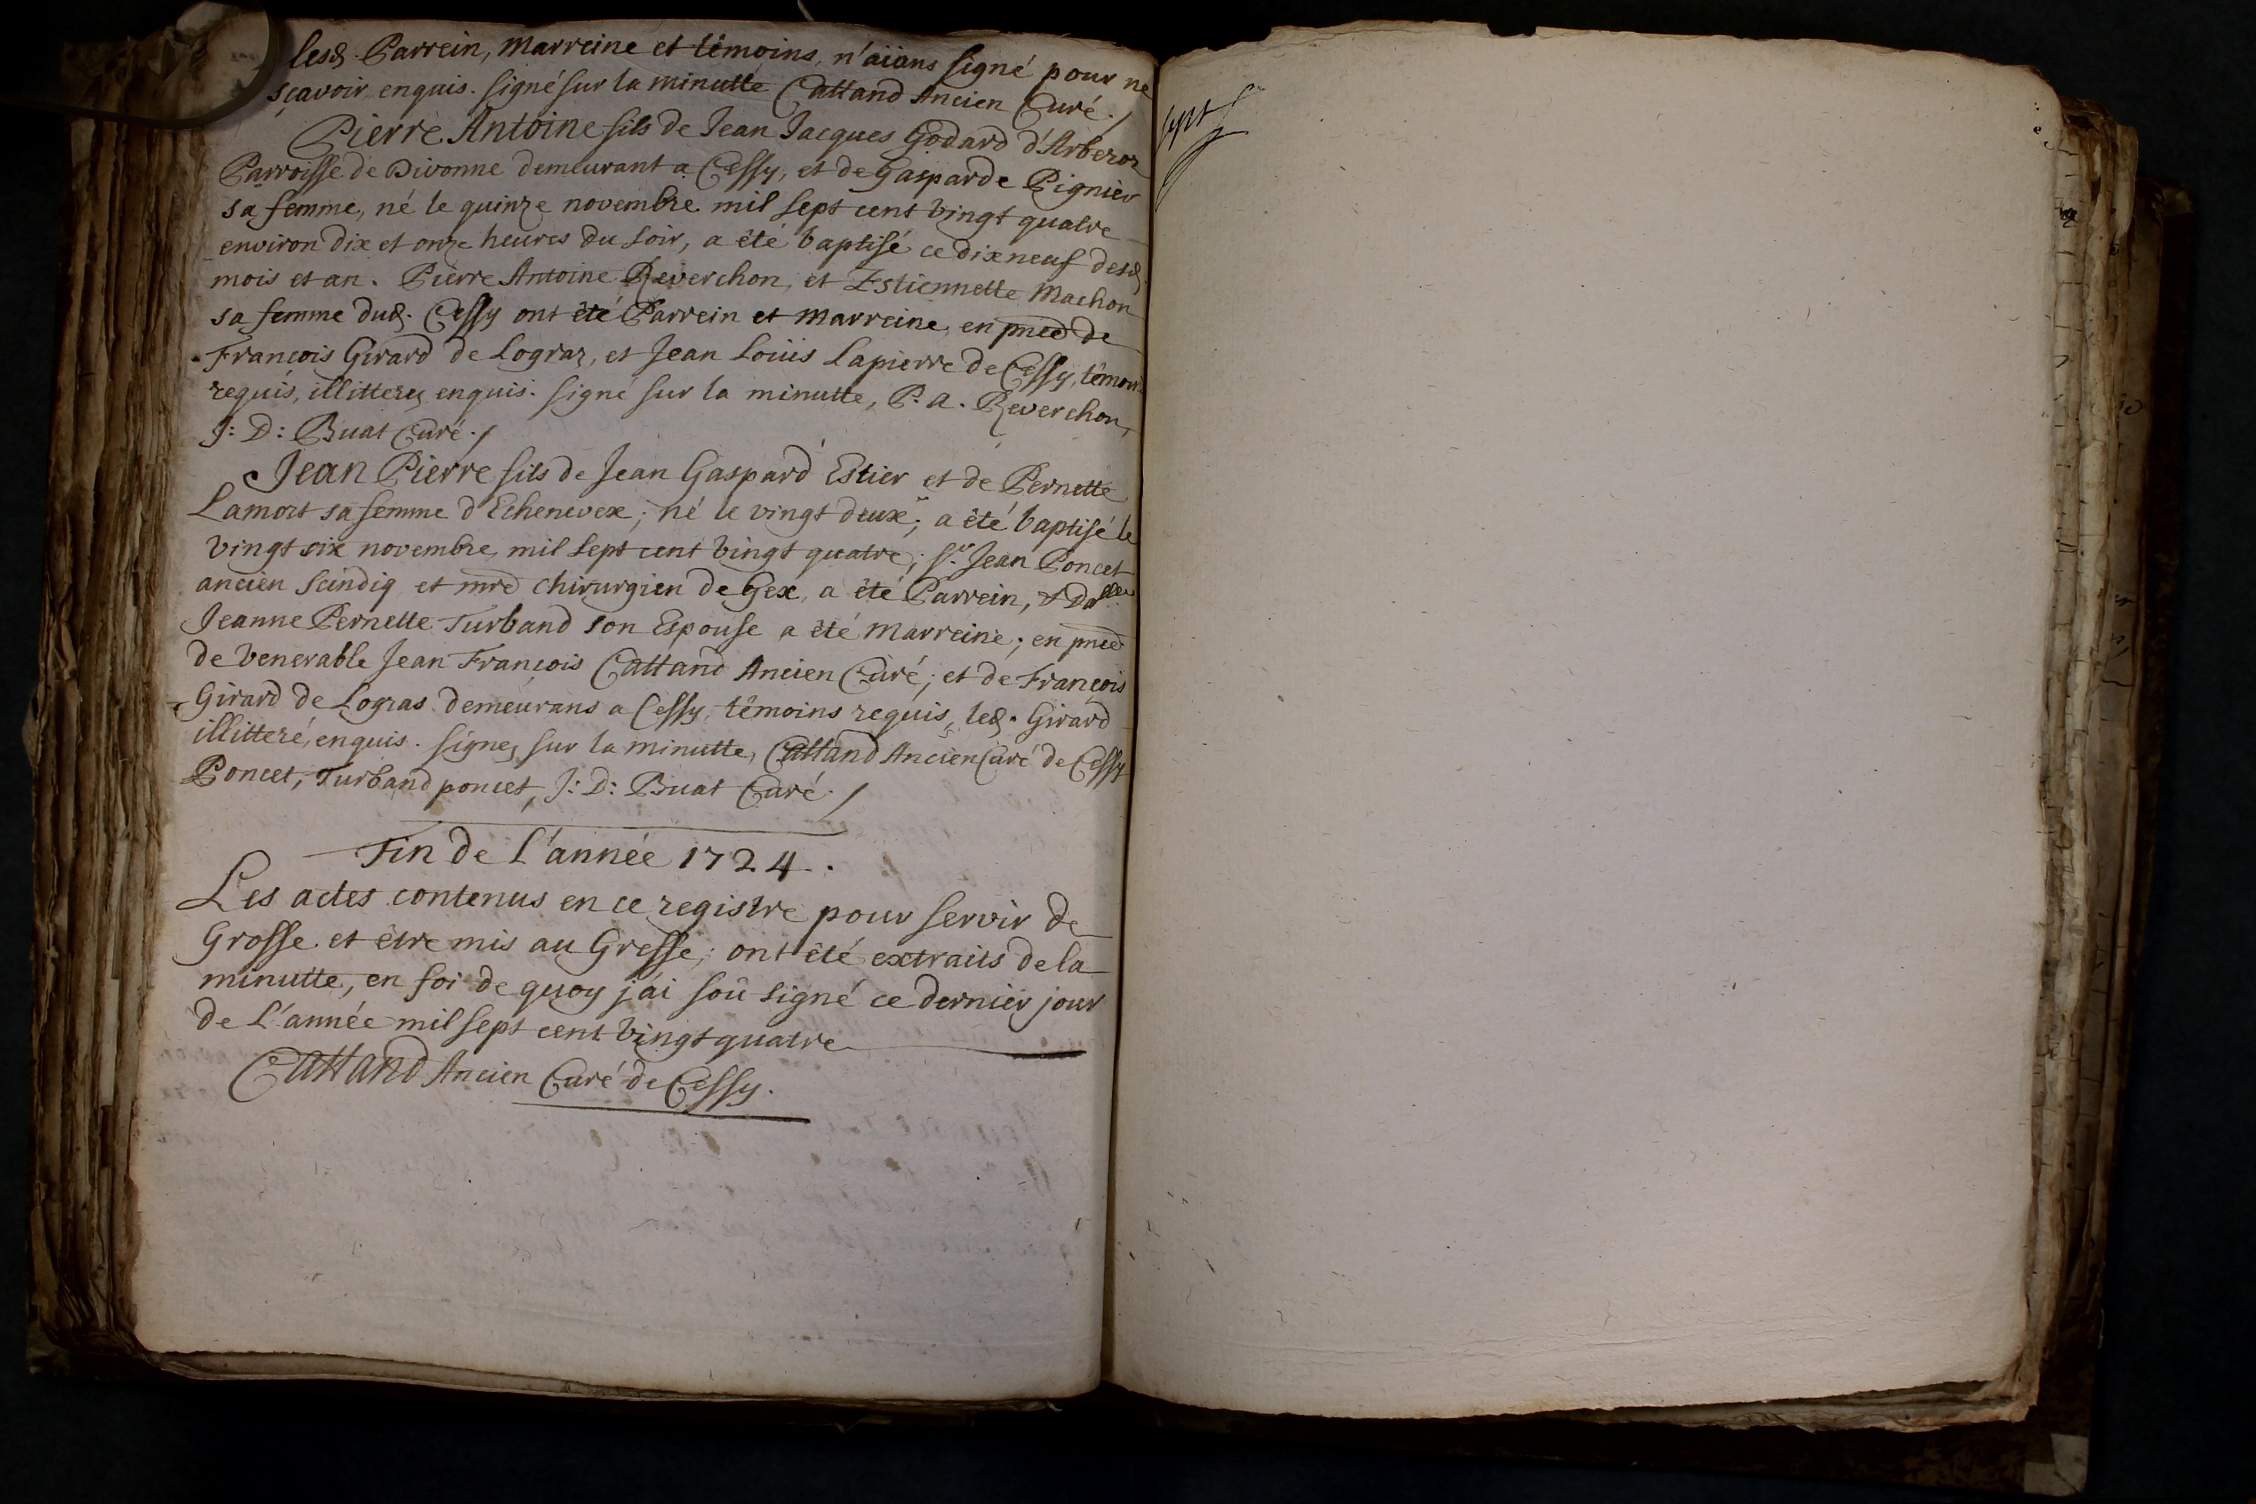 lesd. Parrein, Marreine et têmoins, n'aïans signé pour ne
sçavoir enquis. signé sur la minutte Cattand Ancien Curé./
Pierre Antoine fils de Jean Jacques Godard d'Arberoz
Parroisse de Divonne demeurant a Cessy, et de Gasparde Pignier
sa femme, né le quinze novembre mil sept cent vingt quatre
environ dix et onze heures du soir, a été baptisé ce dixneuf desd.
mois et an. Pierre Antoine Reverchon, et Estiennette Machon
sa femme dud. Cessy ont été Parrein et Marreine, en pnce de
François Girard de Lograz, et Jean Loüis Lapierre de Cessy, têmoins
requis, illitterez enquis. signé sur la minutte, P. A. Reverchon,
J: D: Buat Curé./
Jean Pierre fils de Jean Gaspard Estier et de Pernette
Lamort sa femme d'Echenevex; né le vingt deux; a été baptisé le
vingt six novembre mil sept cent vingt quatre; Sr. Jean Poncet
ancien scindiq et mre chirurgien de Gex, a été Parrein, & Dalle
Jeanne Pernette Turband son Espouse a été Marreine; en pnce
de venerable Jean François Cattand Ancien Curé; et de François
Girard de Logras demeurans a Cessy, têmoins requis, led. Girard
illitteré, enquis. signez sur la minutte, Cattand Ancien Curé de Cessy
Poncet, Turband poncet, J: D: Buat Curé./
Fin de L'année 1724.
Les actes contenus en ce registre pour servir de
Grosse et être mis au Greffe; ont été extraits de la
minutte, en foi de quoy j'ai soû signé ce dernier jour
de L'année mil sept cent vingt quatre
Cattand Ancien Curé de Cessy.
sept